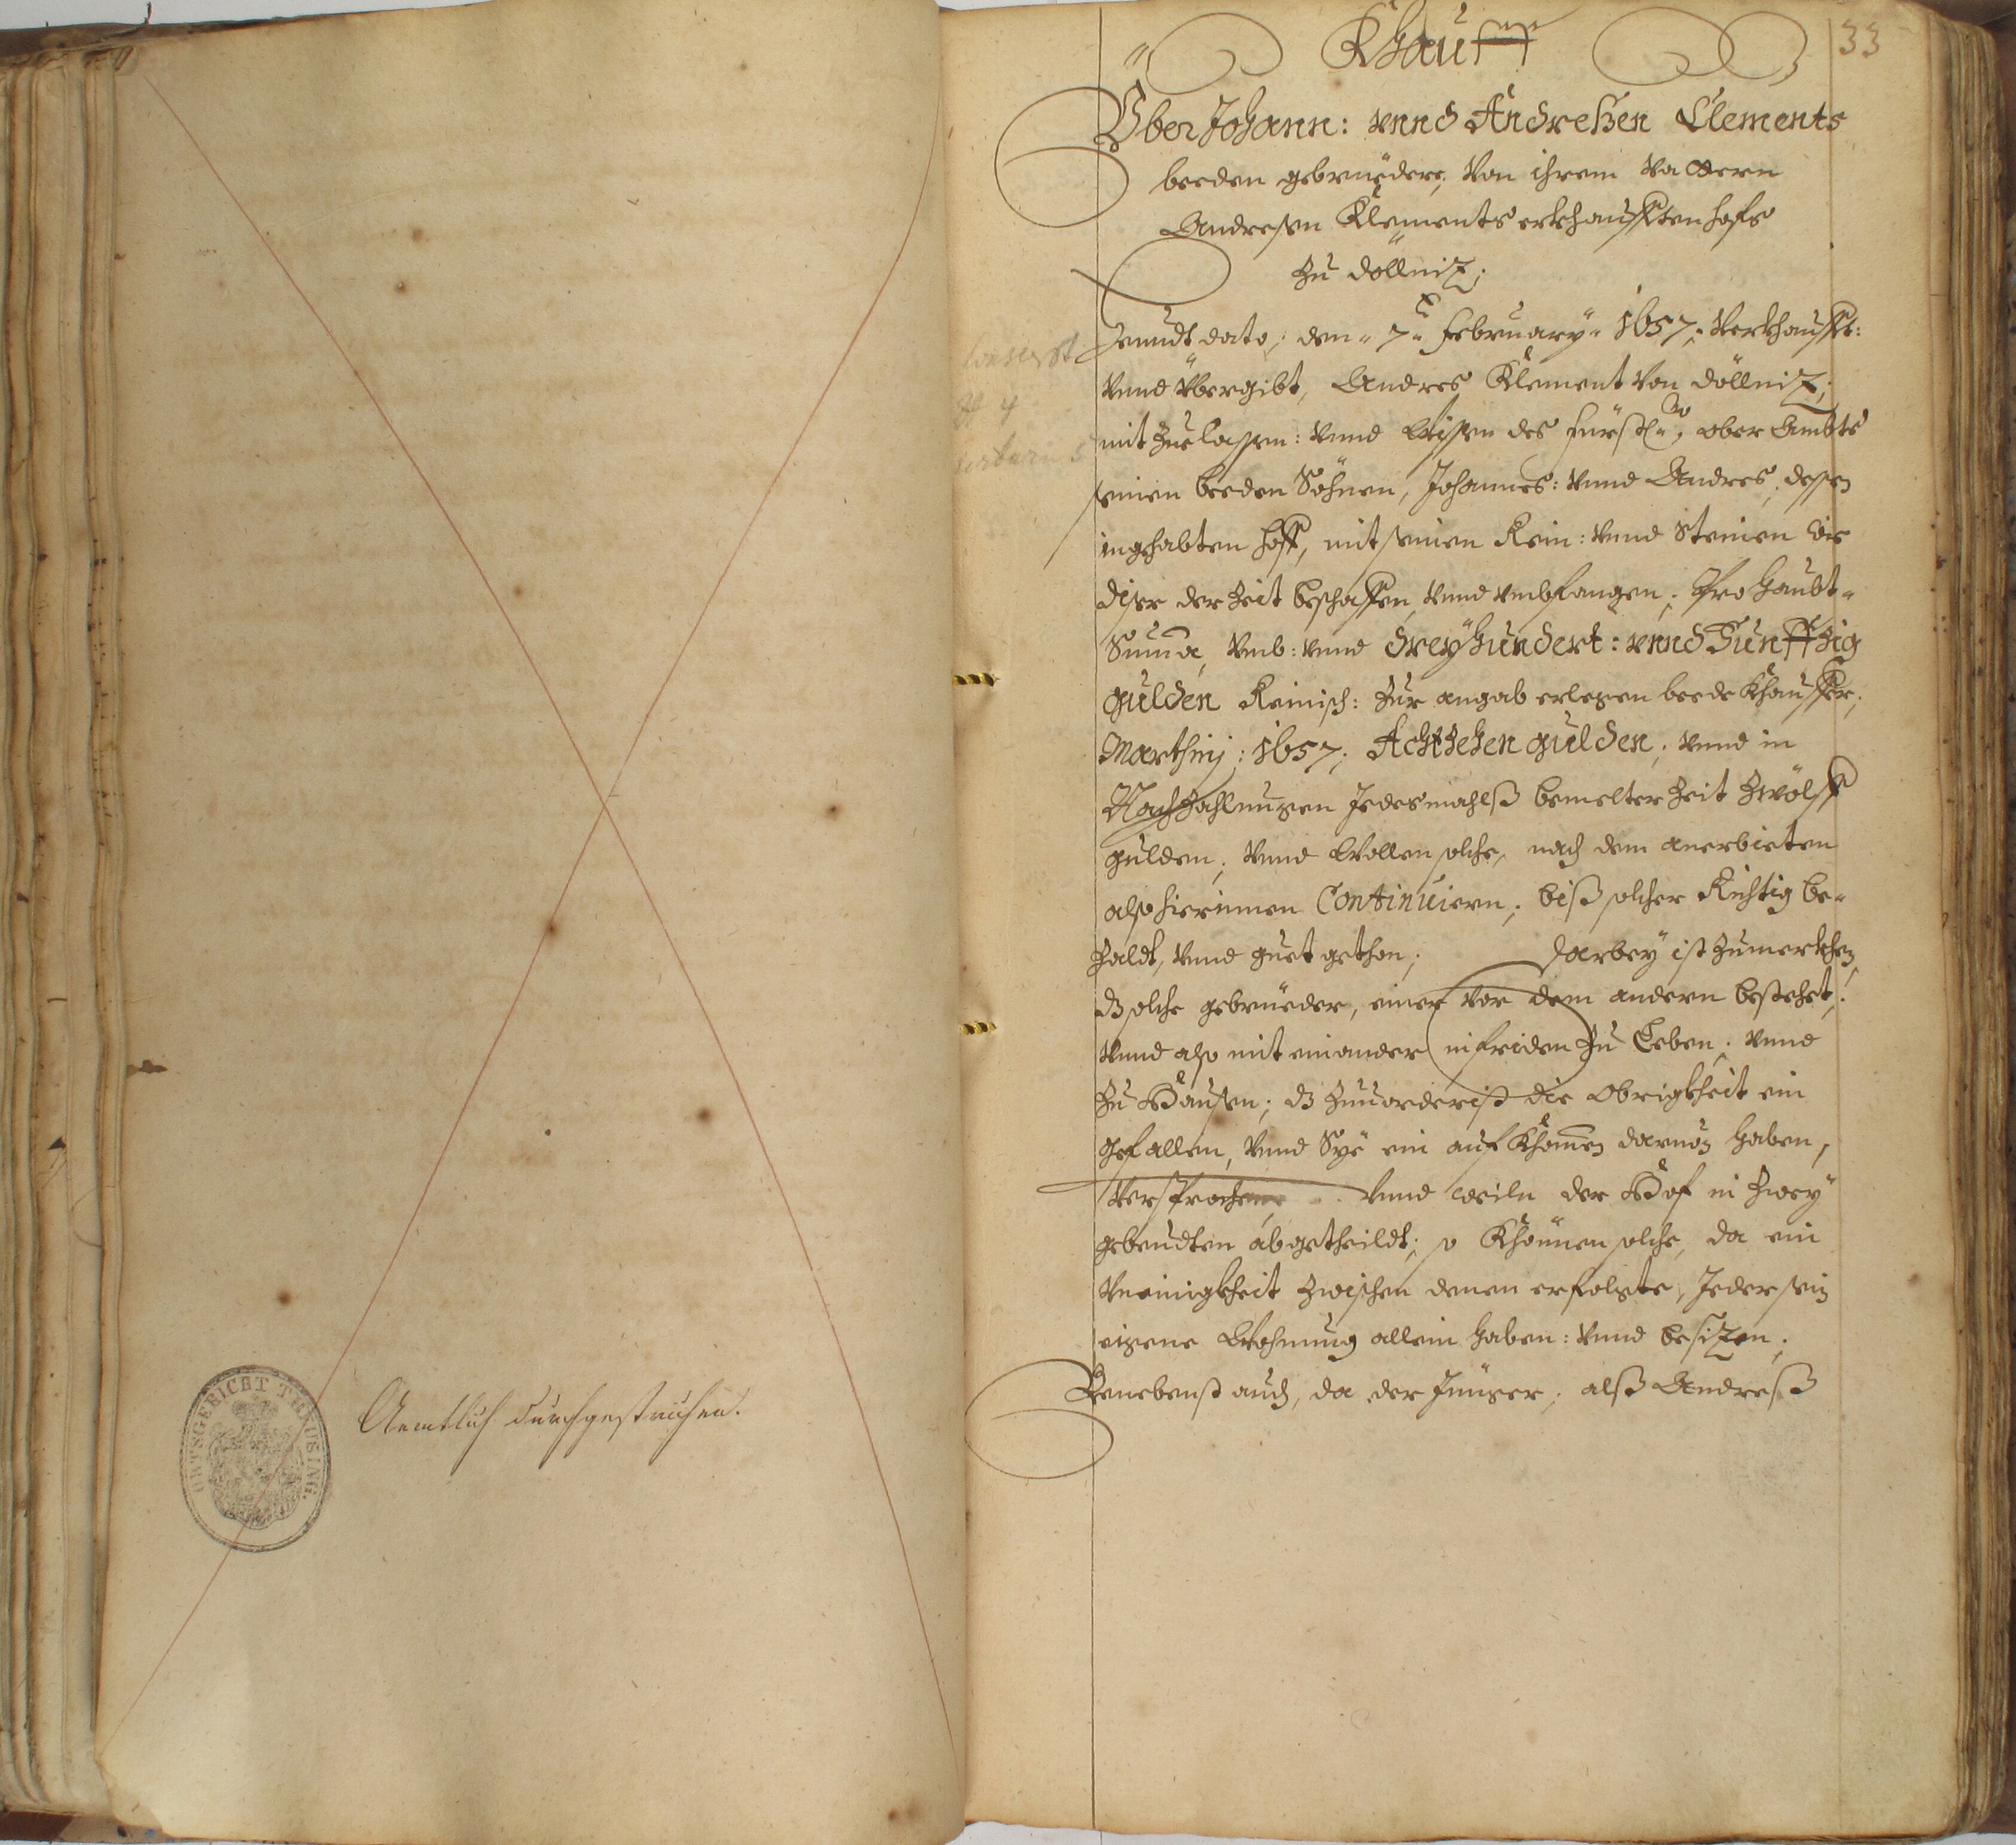 Aemtlich durchgestrichen.
ORTSGERICHT TRAUSING.
33
Khauff
Vber Johann: vnnd Andreßen Clements
beeden gebrüedere, von ihrem Vattern
Andresen Klements erkhaufften hofs
zu döllniz;
Heundt dato, den 7. February 1657, Verkhaufft:
vnnd vbergibt, Andres Klement von döllniz,
mit Zuelassen: vnnd Wissen des fürstl: ober Ambts
seinen beeden Söhnen, Johannes: vnnd Andres, dessen
ingehabten hoff, mit seinen Rein: vnnd Steinen wie
diser der Zeit beschaffen, vnnd vmbfangen, Pro haubt-
Summa, vmb: vnnd dreyhundert: vnnd Fünffzig
gulden Reinisch: Zur angab erlegen beede khauffer,
Marthinj: 1657, Achtzehen gulden, vnnd in
Nachzahlungen Jedesmahlß bemelter Zeit Zwölff
gulden, vnnd Wollen solche, nach dem anerbieten
also hierinnen Continuiern, biß solcher Richtig be-
zaldt, vnnd guet gethan, darbey ist zumerkhen,
dz solche gebrüeder, einer vor dem andern bestehet,
vnnd also mit einander in friden zu Leben, vnnd
zu Hausen, dz zuuorderist die Obrigkheit ein
gefallen, vnnd Sye ein aufkhomen daruon haben,
versprochen, vnnd weiln der Hof in zwey
gebeudten abgetheildt, so khönnen solche, da ein
Vneinigkheit zwischen denen erfolgte, Jeder sein
eigene Wohnung allein haben: vnnd besizen,
Benebenst auch, da der Jünger, alß Andreß